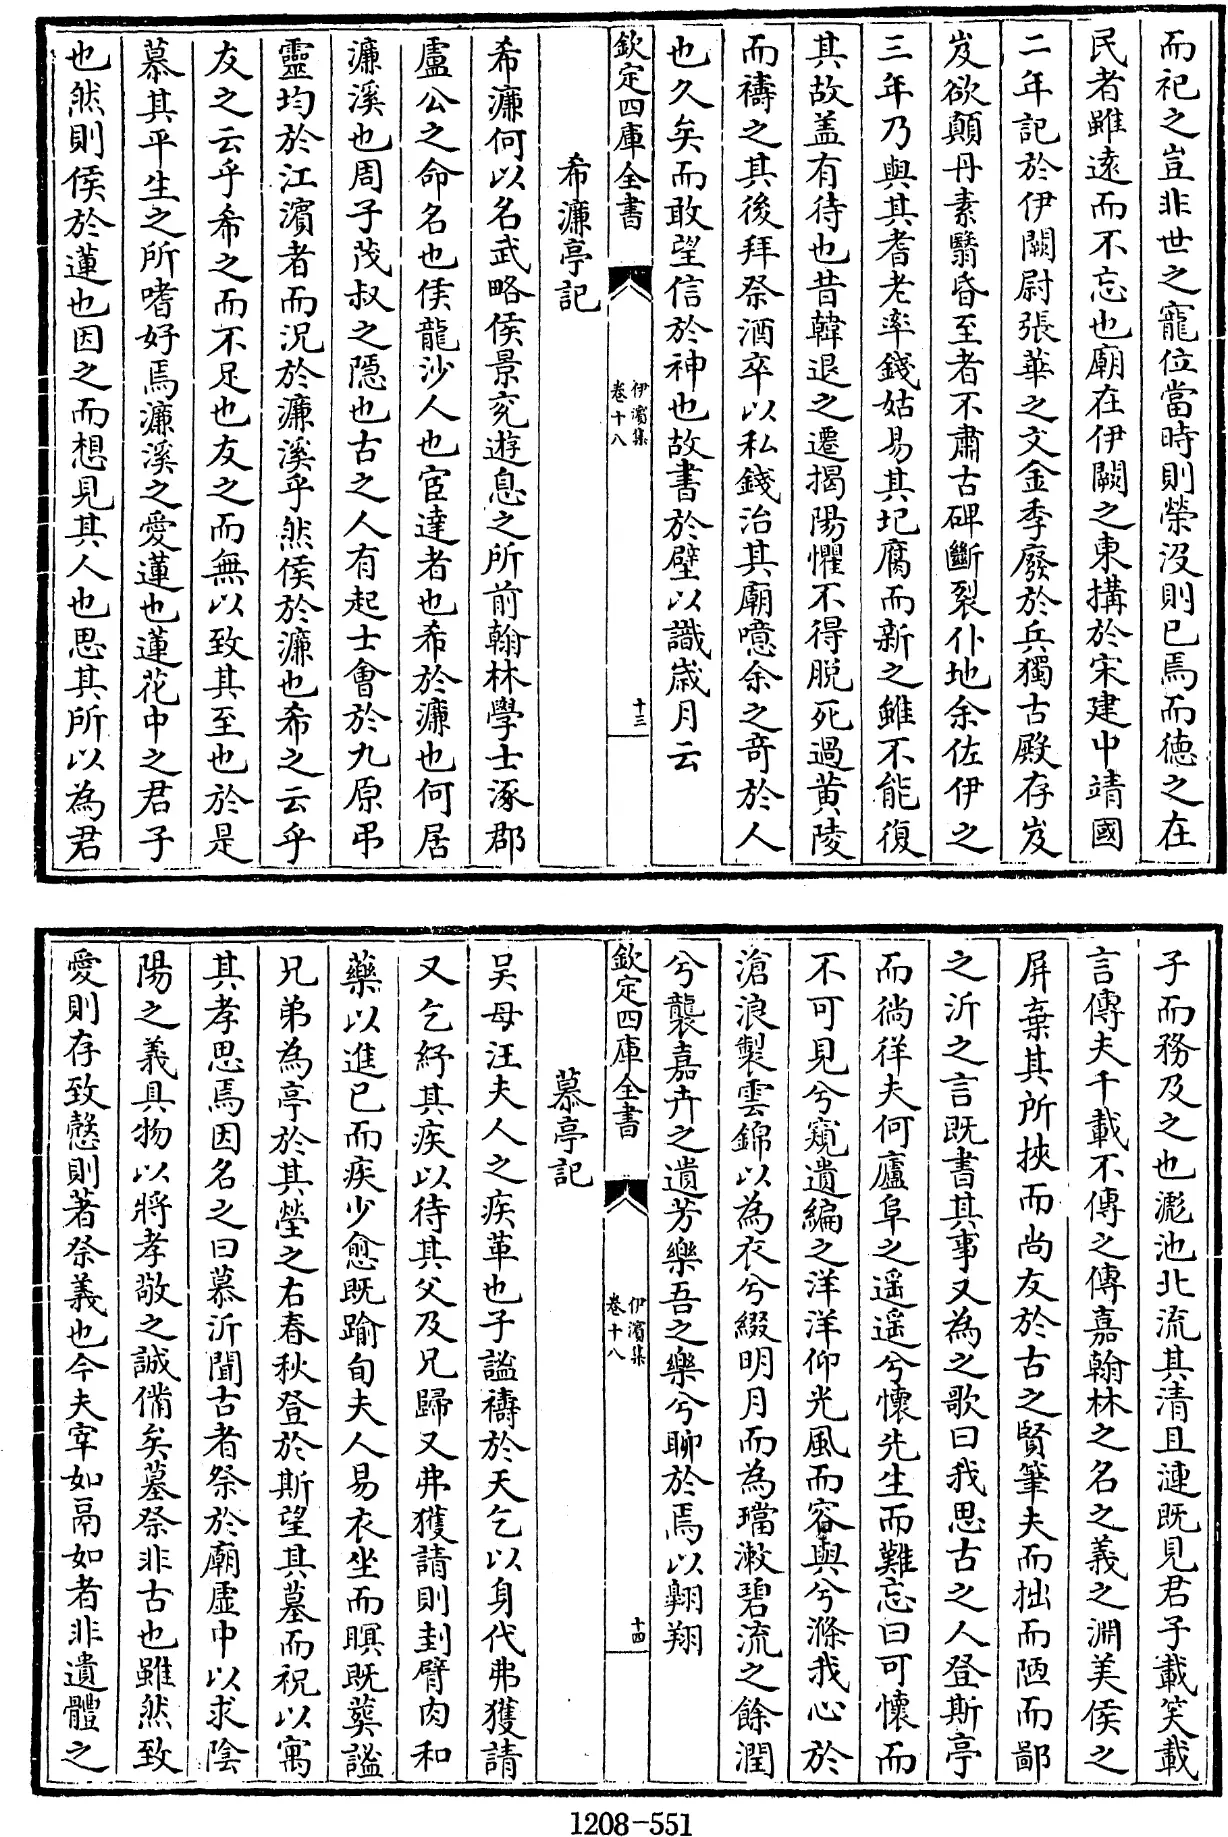 而祀之豈非世之寵位當時則榮没則已焉而德之在
民者雖逺而不忘也廟在伊闕之東搆於宋建中靖國
二年記於伊闕尉張華之文金季廢於兵獨古殿存岌
岌欲顛丹素翳昏至者不肅古碑斷裂仆地余佐伊之
三年乃與其耆老率錢姑易其圮腐而新之雖不能復
其故盖有待也昔韓退之遷揭陽懼不得脱死過黄陵
而禱之其後拜祭酒卒以私錢治其廟噫余之竒於人
也久矣而敢望信於神也故書於壁以識歳月云
欽定四庫全書
伊濱集
卷十八
十三
希濂亭記
希濂何以名武略侯景兖遊息之所前翰林學士涿郡
盧公之命名也侯龍沙人也宦達者也希於濂也何居
濂溪也周子茂叔之隱也古之人有起士會於九原弔
靈均於江濵者而況於濂溪乎然侯於濂也希之云乎
友之云乎希之而不足也友之而無以致其至也於是
慕其平生之所嗜好焉濂溪之愛蓮也蓮花中之君子
也然則侯於蓮也因之而想見其人也思其所以為君
子而務及之也滮池北流其清且漣既見君子載笑載
言傳夫千載不傳之傳嘉翰林之名之義之淵美侯之
屏棄其所挾而尚友於古之賢筆夫而拙而陋而鄙
之沂之言既書其事又為之歌曰我思古之人登斯亭
而徜徉夫何廬阜之遥遥兮懷先生而難忘曰可懷而
不可見兮窺遺編之洋洋仰光風而容與兮滌我心於
滄浪製雲錦以為衣兮綴明月而為璫潄碧流之餘潤
兮襲嘉卉之遺芳樂吾之樂兮聊於焉以翺翔
欽定四庫全書
伊濱集
卷十八
十四
慕亭記
吴母汪夫人之疾革也子謐禱於天乞以身代弗獲請
又乞紓其疾以待其父及兄歸又弗獲請則刲臂肉和
藥以進已而疾少愈既踰旬夫人易衣坐而瞑既葬謐
兄弟為亭於其塋之右春秋登於斯望其墓而祝以寓
其孝思焉因名之曰慕沂聞古者祭於廟虚中以求陰
陽之義具物以將孝敬之誠備矣墓祭非古也雖然致
愛則存致慤則著祭義也今夫宰如鬲如者非遺體之
1208-551